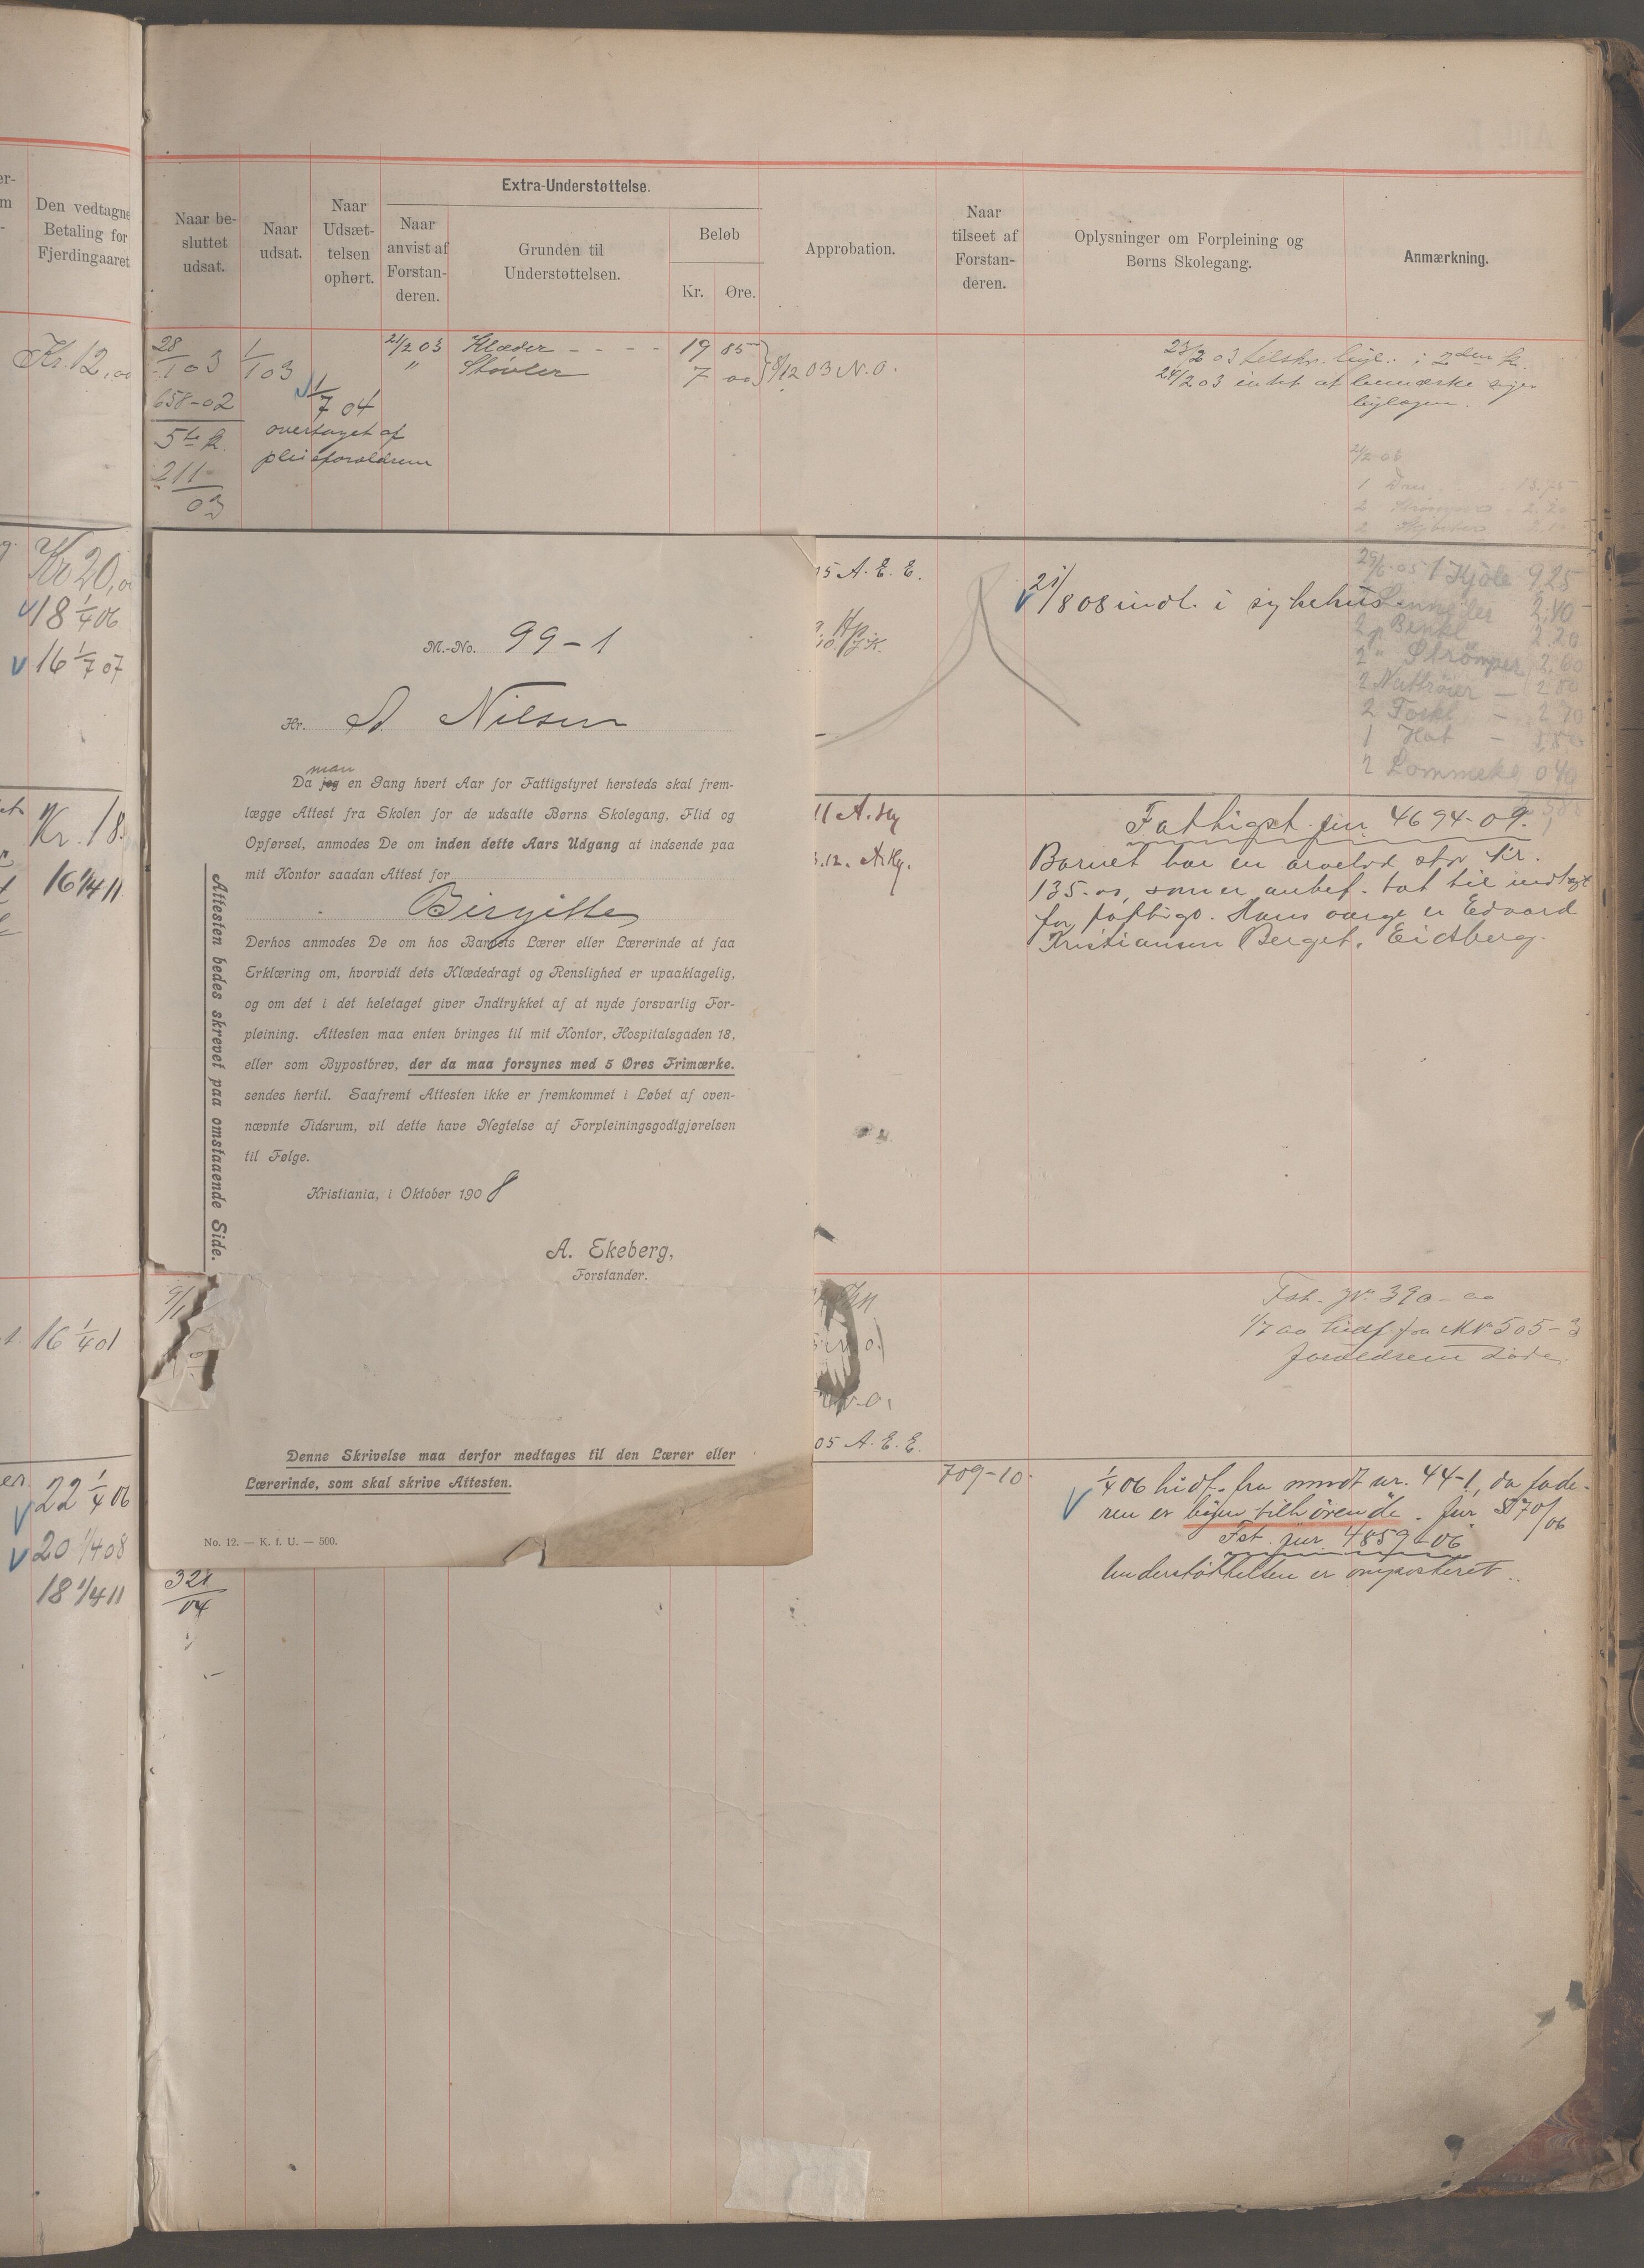 Den vedtagne
Betaling for
Fjerdingaaret
Kr. 12,00
Kr 20,
18 1/4 06
16 1/7 07
Kr. 18.
16 1/4 11
16 1/4 01
22 1/4 06
20 1/4 08
18 1/4 11
Extra-Understøttelse.
Naar be-
sluttet
udsat.
Naar
udsat.
Naar
Udsæt-
telsen
ophørt.
Naar
anvist af
Forstan-
deren.
Grunden til
Understøttelsen.
Beløb
Kr.
Øre.
Approbation.
Naar
tilseet af
Forstan-
deren.
Oplysninger om Forpleining og
Børns Skolegang.
Anmærkning.
28/1 03
1/1 03
21/2 03 Klæder - - - - 19 85
" Støvler 7 00
8/12 03 N.O.
658-02
1/7 04
overtaget af
pleieforældrene
5te k.
211-
03
24/2 03 intet at bemærke siger
1 Dres 13.75
2 Strømper 2.20
M.-No. 99-1
Hr. A Nilsen
man
Da jeg en Gang hvert Aar for Fattigstyret hersteds skal frem-
lægge Attest fra Skolen for de udsatte Børns Skolegang, Flid og
Opførsel, anmodes De om inden dette Aars Udgang at indsende paa
mit Kontor saadan Attest for
Birgitte
Derhos anmodes De om hos Barnets Lærer eller Lærerinde at faa
Erklæring om, hvorvidt dets Klædedragt og Renslighed er upaaklagelig,
og om det i det heletaget giver Indtrykket af at nyde forsvarlig For-
pleining. Attesten maa enten bringes til mit Kontor, Hospitalsgaden 18,
eller som Bypostbrev, der da maa forsynes med 5 Øres Frimærke.
sendes hertil. Saafremt Attesten ikke er fremkommet i Løbet af oven-
nævnte Tidsrum, vil dette have Negtelse af Forpleiningsgodtgjørelsen
til Følge.
Kristiania, i Oktober 1908
A. Ekeberg,
Forstander.
Attesten bedes skrevet paa omstaaende Side.
Denne Skrivelse maa derfor medtages til den Lærer eller
Lærerinde, som skal skrive Attesten.
No. 12. — K. f. U. — 500.
321
04
05 A. E. E.
21/8 08 indl. i sykehus
29/6 05 1 Kjole 9.25
2.40
2 " Benkl 2.20
2 " Strömper 2.60
2 Nattröier - 2.80
2 Forkl - 2.70
1 Hat - 1.80
2 Lommekl 0.40
11 A. Hy
.12. A. Hy.
Fattigst. jur. 4694-09.
Barnet har en arvelod stor kr.
135.00, som er anbef. tat til indtægt
for fattigv. Hans værge er Edvard
Kristiansen Berget, Eidsberg.
Fst. jr. 390-00
1/7 00 hidf. fra M.Nr 505-3
forældrene døde.
05 A. E. E.
709-10.
1/4 06 hidf. fra mndt nr. 44-1, da fade-
ren er byen tilhörende. jur 3170/06
Fst. jur. 4859-06
Understöttelsen er omposteret.